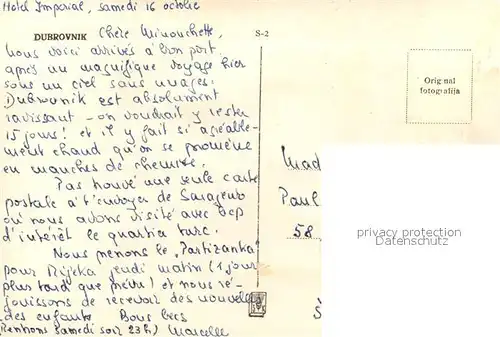 Hotel Imperial, samedi 16 octobre
DUBROVNIK Chère Minouchette,
S-2
Nous voici arrivés à bon port,
après un magnifique voyage hier
sous un ciel sans nuages.
Dubrovnik est absolument
ravissant – on voudrait y rester
15 jours! et il y fait si agréable-
ment chaud qu'on se promène
en manches de chemise.
Pas trouvé une seule carte
postale à t'envoyer de Sarajevo
où nous avons visité avec bcp
d'intérêt le quartier turc.
Nous prenons le "Partizanka"
pour Rijeka jeudi matin (1 jour
plus tard que prévu) et nous ré-
jouissons de recevoir des nouvelles
des enfants. Bons becs
(Rentrons samedi soir 23h) Marcelle
Original
fotografija
Mad
Paul
58,
privacy protection
Datenschutz